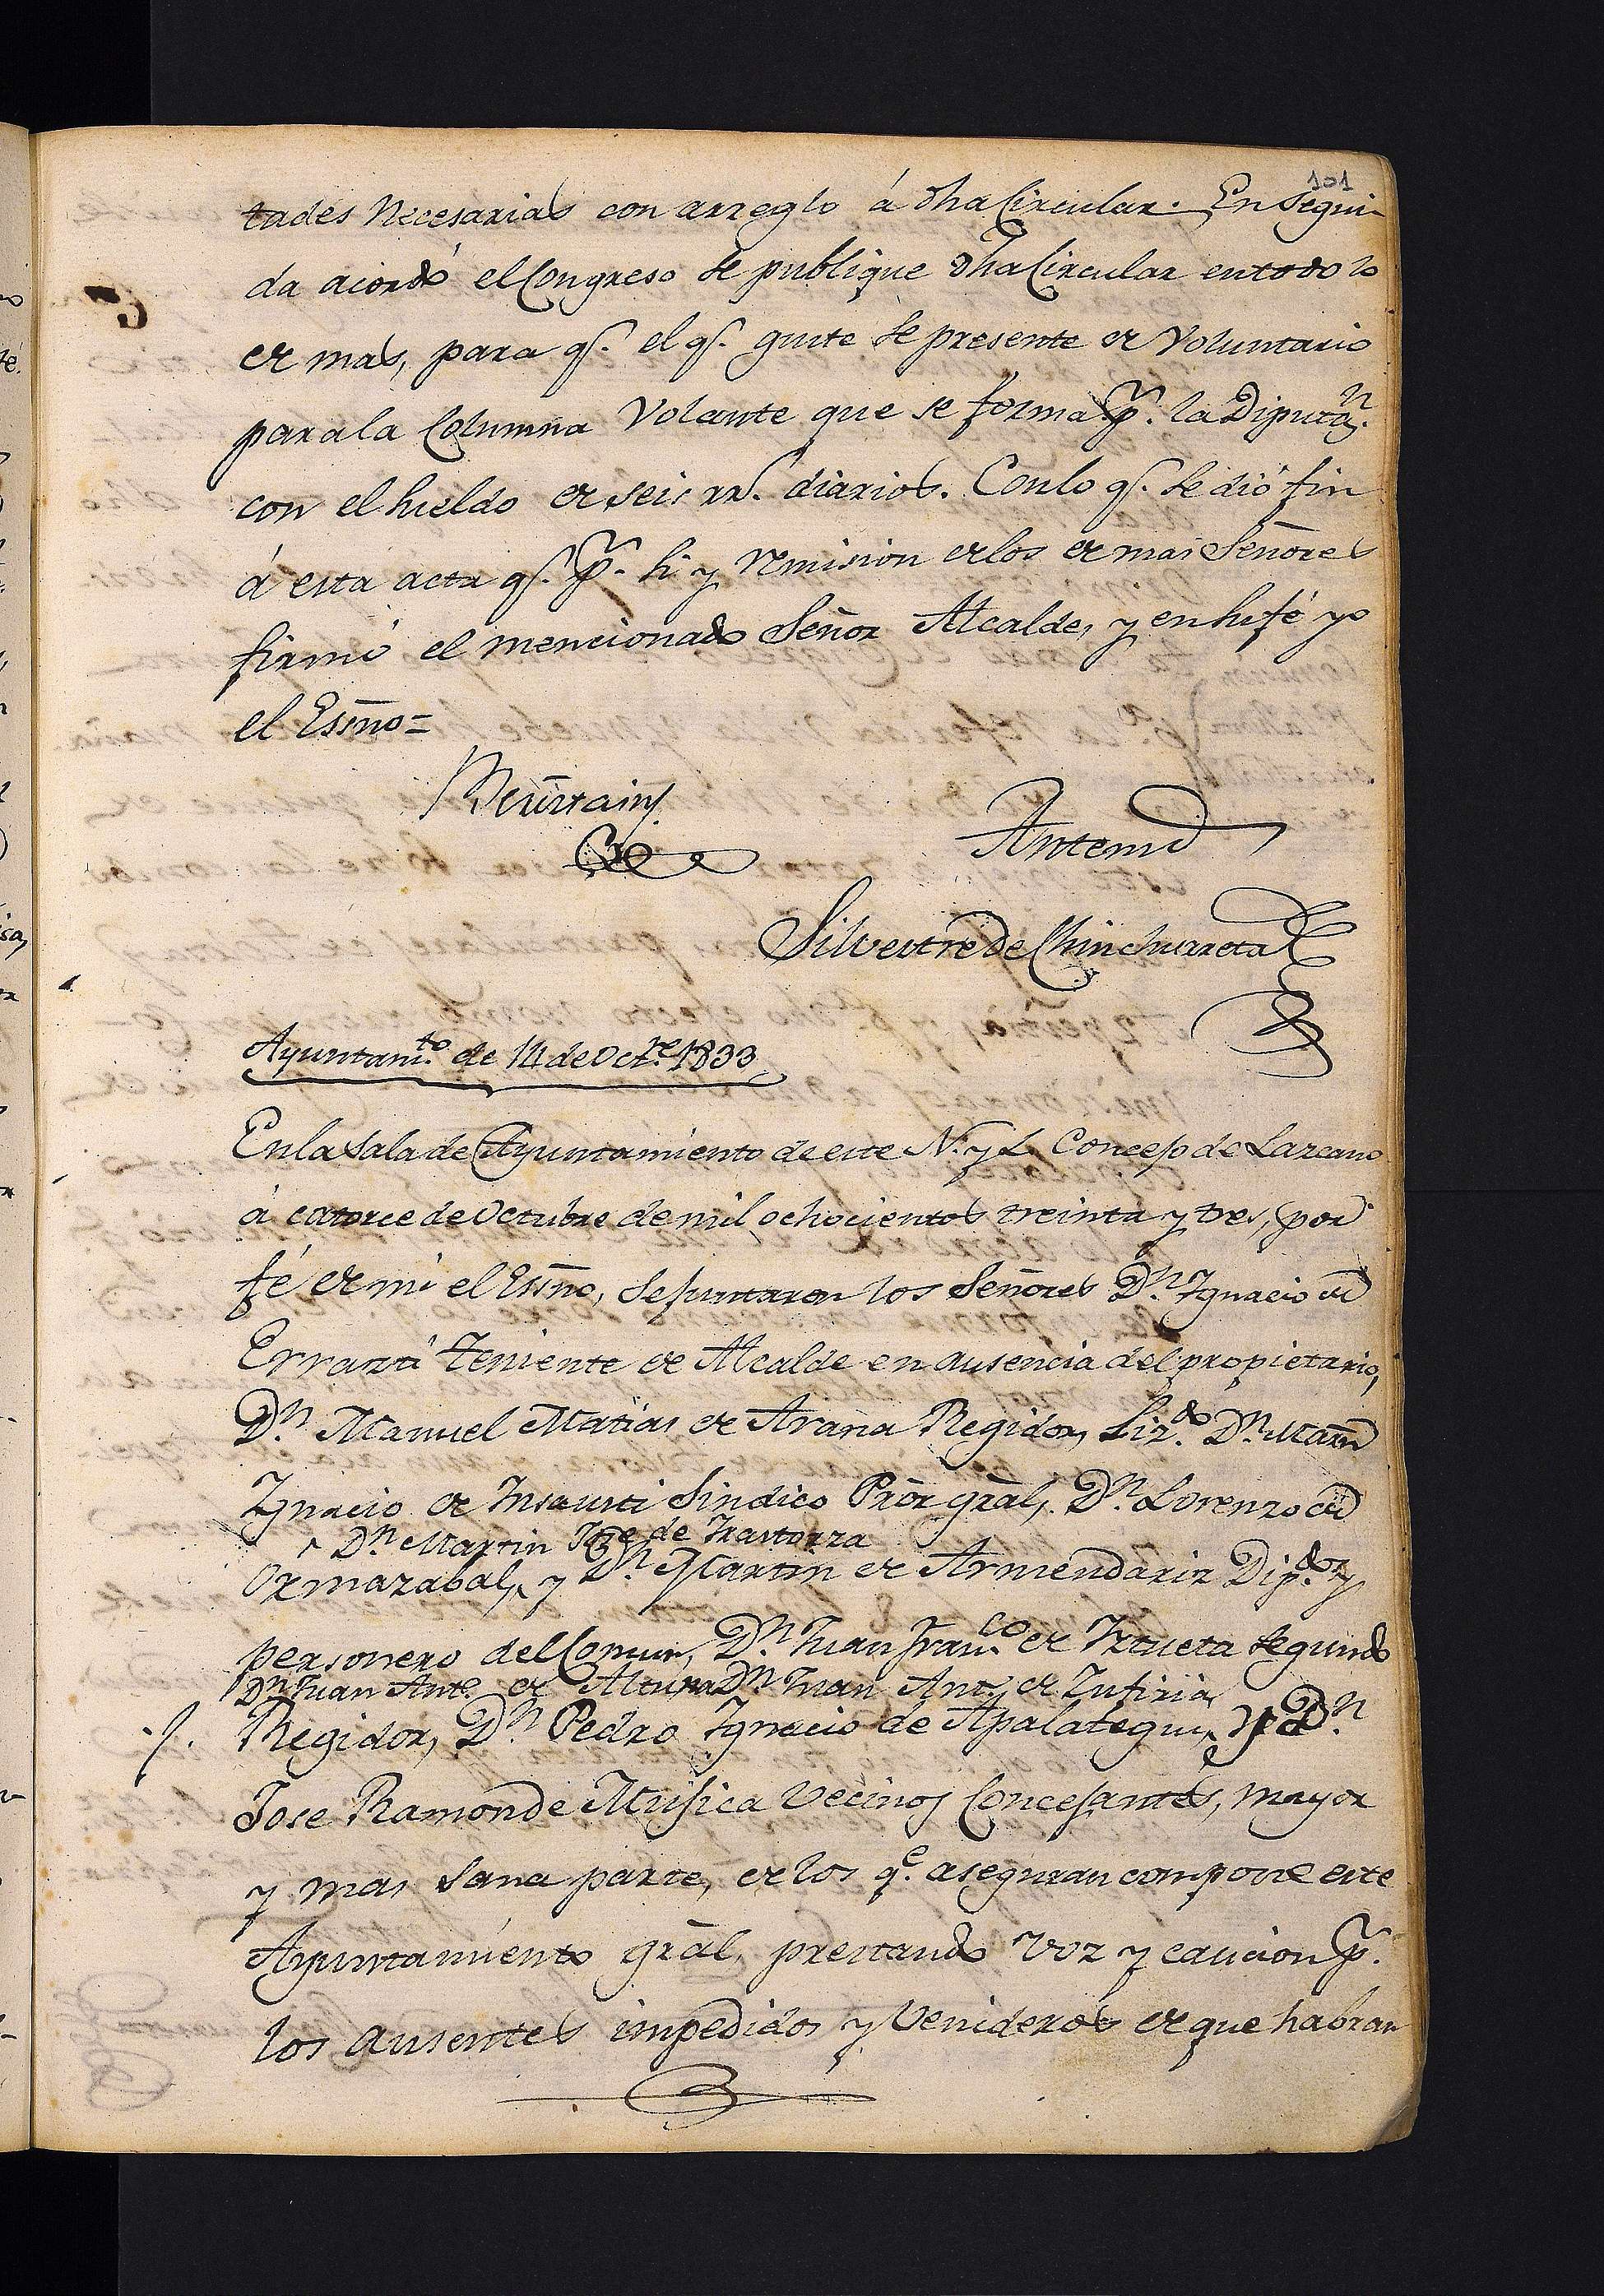 101
tades necesarias con arreglo á dha Circular. En segui-
da acordó el Congreso se publique dha Circular en todo lo
de mas, para q.e el q.e guste se presente de Voluntario
para la Columna Volante que se forma p.r la Diputa.n
con el sueldo de seis rr.s diarios. Con lo q.e se dió fin
á esta acta q.e p.r si y remision de los de mas Señores
firmó el mencionado Señor Alcalde, y en su fé yo
el Essno=
Antemi
Silvestre de Chinchurreta
Ayuntam.to de 14 de Oct.re 1833
En la Sala de Ayuntamiento de este N. y L. Concejo de Lazcano
á catorce de Octubre de mil ochocientos treinta y tres, por
fé de mi el Essno, se juntaron los Señores D.n Ignacio de
Errazti Teniente de Alcalde en ausencia del propietario,
D.n Manuel Matias de Arana Regidor, Liz.do D.n Martn
Ignacio de Insausti Sindico Pror gral, D.n Lorenzo de
^ D.n Martin Jse de Irastorza
Ormazabal, y D.n Martin de Armendariz Dip.dos y
personero del Comun, D.n Juan Fran.co de Iztueta segundo
D.n Juan Ant.o de Altuna D.n Juan Ant.o de Zufiria
./. Regidor, D.n Pedro Ignacio de Apalategui, y D.n
Jose Ramon de Mujica Vecinos Concejantes, mayor
y mas sana parte, de los q.e aseguran compone este
Ayuntamiento gral, prestando voz y caucion p.r
los ausentes impedidos y venideros de que habran